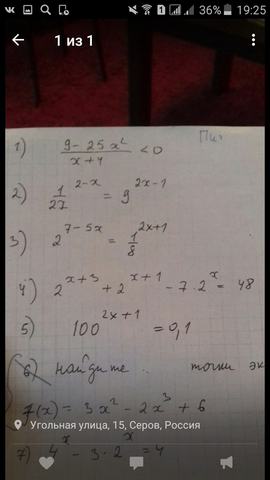 36% 19:25
1 из 1
1) (9 - 25x²)/(x+4) < 0
2) 1/27^(2-x) = 9^(2x-1)
3) 2^(7-5x) = 1/8^(2x+1)
4) 2^(x+3) + 2^(x+1) - 7·2^x = 48
5) 100^(2x+1) = 0,1
6) найдите .. точки эк
f(x) = 3x² - 2x³ + 6
Угольная улица, 15, Серов, Россия
7) 4^x - 3·2^x = 4